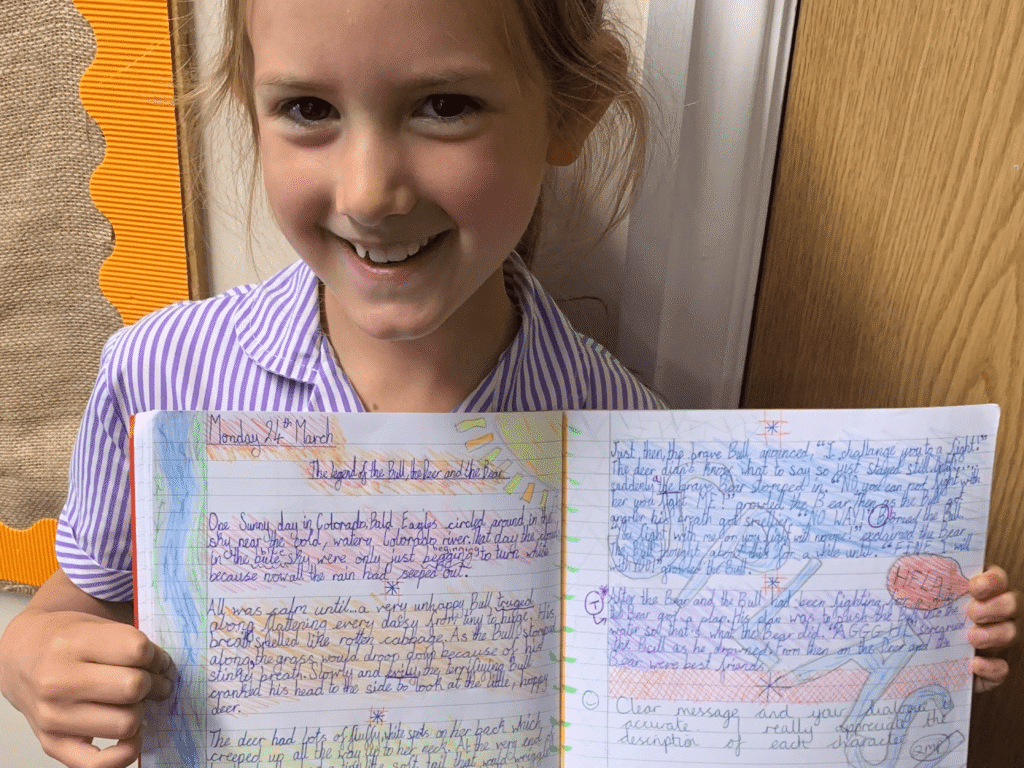 Monday 24th March
The legend of the Bull, the Deer and the Bear
One Sunny day in Colorado, Bald Eagles circled around in the
sky near the cold, watery Colorado river. that day the clouds
in the blue sky were only just beginning to turn white
because now all the rain had seeped out.
All was calm until... a very unhappy Bull trudged
along flattening every daisy from tiny to huge. His
breath smelled like rotten cabbage. As the Bull stomped
along the grass would droop because of his
stinky breath. Slowly and the terrifiying Bull
cranked his head to the side to look at the little, happy
deer.
The deer had lots of fluffy white spots on her back which
creeped up all the way up to her neck. At the very end of
soft tail that would
Just then, the brave Bull "I challange you to a fight!"
The deer didn't know what to say so just stayed still
suddenly a brave Bear stomped in. "No you can not fight with
deer you fight ME!" growled the Bear. Then as the Bull got
his breath got smellier. "NO WAY!" the Bull
"You fight with me or you fight will no one" exclaimed the Bear
The Bull thought about this for a while until "FINE I will
growled the Bull
HELP
T
After the Bear and the Bull had been fighting
Bear got a plan. His plan was to push the Bull
water so that's what the Bear did. "AGGG
the Bull as he drowned. From then on the Deer and the
Bear were best friends.
Clear message and your dialogue is
accurate. I really appreciate the
description of each character